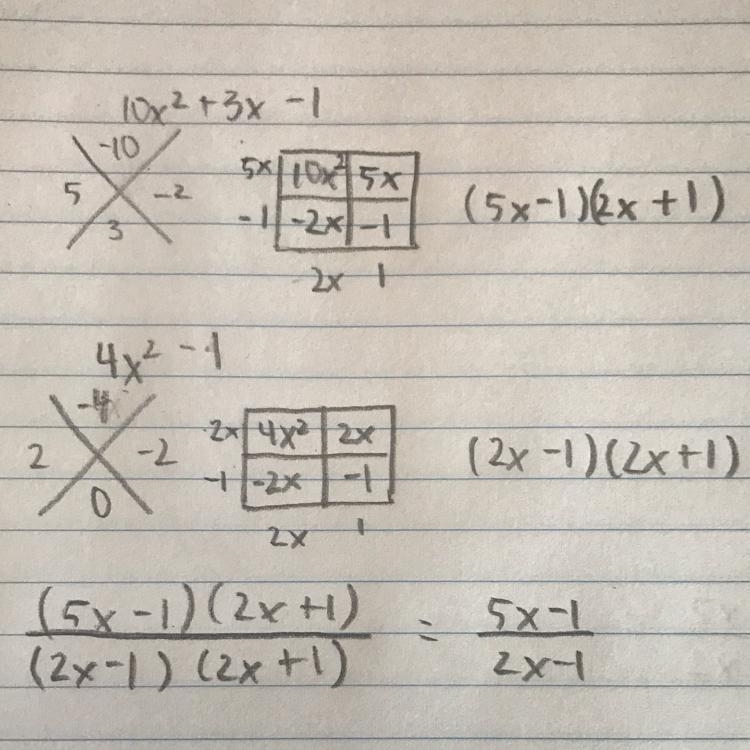 10x² + 3x - 1
-10
5 -2
3
5x 10x² 5x
-1 -2x -1
2x 1
(5x-1)(2x+1)
4x² - 1
-4
2 -2
0
2x 4x² 2x
-1 -2x -1
2x 1
(2x-1)(2x+1)
(5x-1)(2x+1) = 5x-1
(2x-1)(2x+1) 2x-1